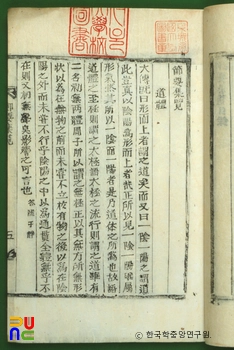 節要集覽
道體
大傳旣曰形而上者謂之道矣而又曰一陰一陽之謂道
此豈眞以陰陽爲形而上者哉正所以見一陰一陽雖屬
形器然其所以一陰一陽者是乃道體之所爲也故語
道體之至極則謂之太極語太極之流行則謂之道雖有
二名初無兩體周子所以謂之無極正以其無方所無形
狀以爲在無物之前而未嘗不立於有物之後以爲在陰
陽之外而未嘗不行乎陰陽之中以爲通貫全體無乎不
在則又初無聲臭影響之可言也 答陸子靜
한국학중앙연구원